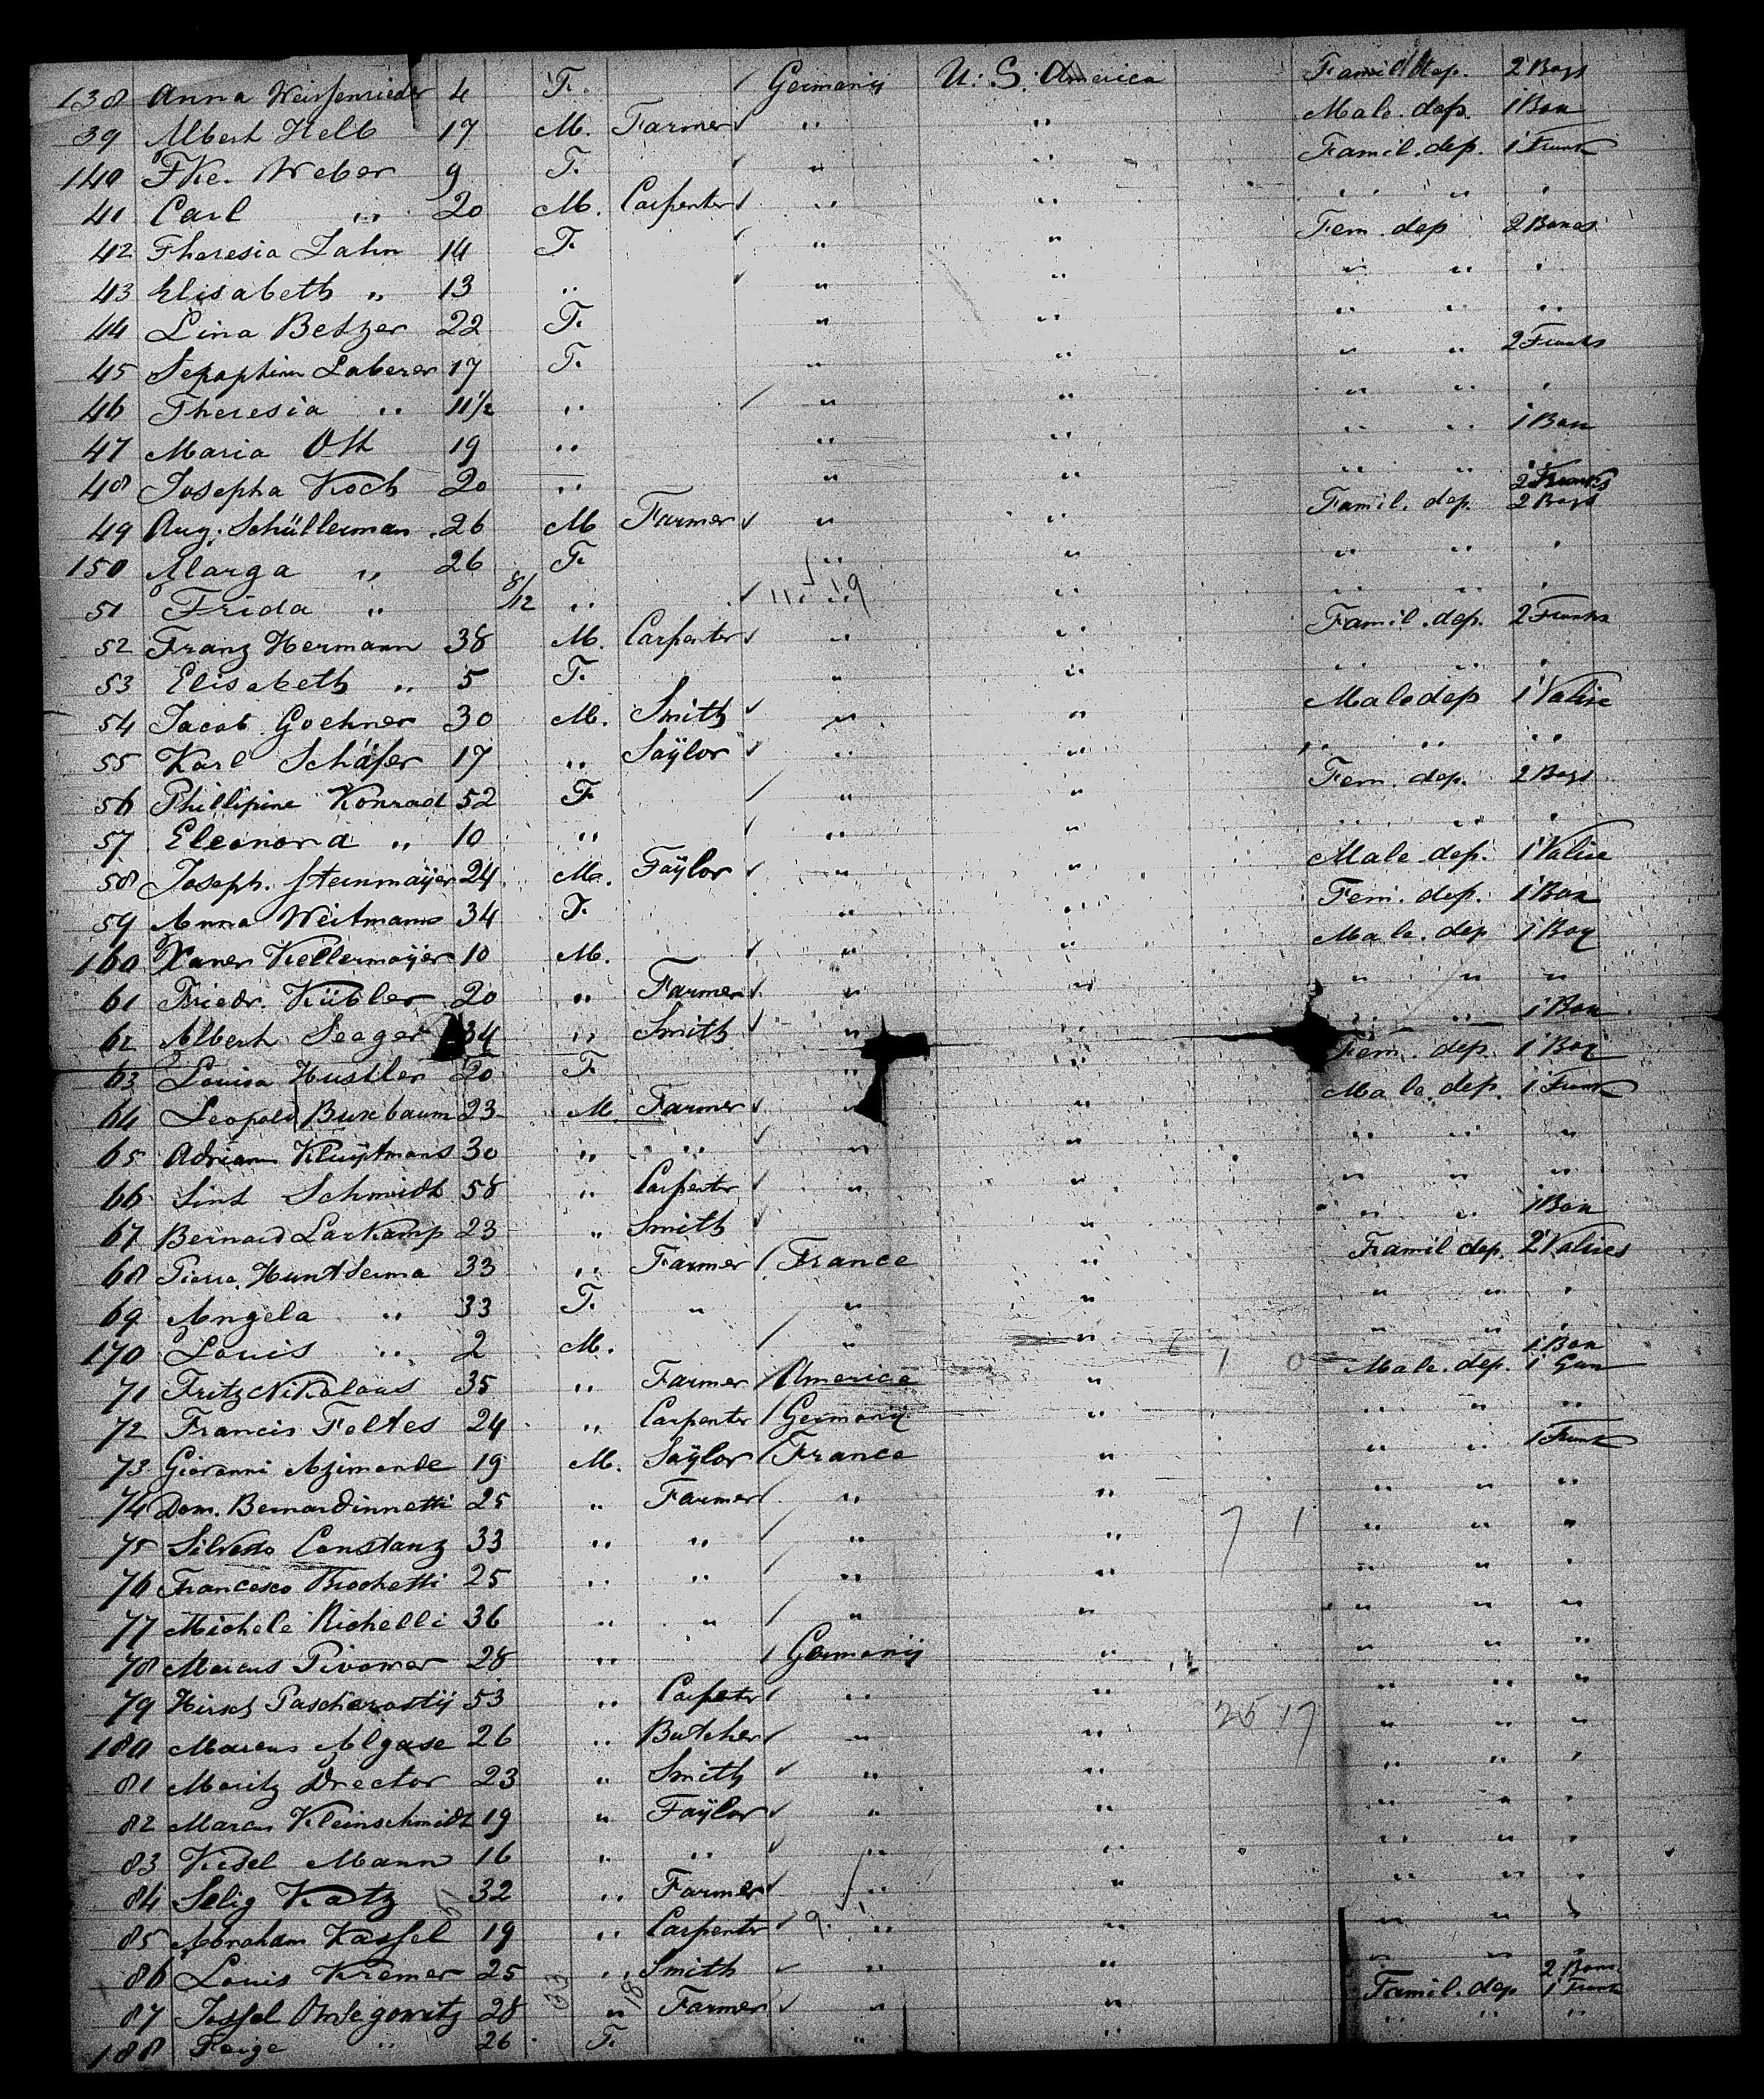 138 Anna Weissenrieder 4 F. Germany U. S. America Famil dep. 2 Bags
39 Albert Helb 17 M. Farmer " " Male. dep. 1 Box
140 Fke. Weber 9 F. " " Famil. dep. 1 Trunk
41 Carl " 20 M. Carpenter " " " " "
42 Theresia Zahn 14 F. " " Fem. dep 2 Boxes
43 Elisabeth " 13 " " " " " "
44 Lina Betzer 22 F. " " " " "
45 Laberer 17 F. " " " " 2 Trunks
46 Theresia " 11½ " " " " " "
47 Maria Ott 19 " " " " " 1 Box
48 Josepha Koch 20 " " " " " "
49 Aug. Schüllerman 26 M Farmer " " Famil. dep. 2 Trunks 2 Bags
150 Marga " 26 F. " " " " "
51 Frida " 8/12 " " " " " "
52 Franz Hermann 38 M. Carpenter " " Famil. dep. 2 Trunks
53 Elisabeth " 5 F. " " " " "
54 Jacob Goehner 30 M. Smith " " Male dep 1 Valise
55 Karl Schäfer 17 " Taÿlor " " " " "
56 Phillipine Konrad 52 F " " Fem. dep. 2 Bags
57 Eleonora " 10 " " " " " "
58 Joseph. Steinmaÿer 24 M. Taÿlor " " Male dep. 1 Valise
59 Anna Weitmann 34 F. " " Fem. dep. 1 Box
160 Xaver Kellermaÿer 10 M. " " Male. dep 1 Bag
61 Friedr. Kübler 20 " Farmer " " " " "
62 Albert Seeger 34 " Smith " " " " 1 Box
63 Louisa Hustler 20 F. " " Fem. dep. 1 Bag
64 Leopold Buxbaum 23 M Farmer " " Male. dep. 1 Trunk
65 Adriam Kluijtmans 30 " " " " " " "
66 Schmidt 58 " Carpenter " " " " "
67 Bernard Larkamp 23 " Smith " " " " 1 Box
68 Pierre Huntserma 33 " Farmer France " Famil dep. 2 Valises
69 Angela " 33 F. " " " " " "
170 Louis " 2 M. " " " " "
71 Fritz Nikolaus 35 " Farmer America " Male. dep. 1 Box 1 Gun
72 Francis Feltes 24 " Carpenter Germany " " " "
73 Giovanni Azimonde 19 M. Taÿlor France " " " 1 Trunk
74 Dom. Bernardinnetti 25 " Farmer " " " " "
75 Silvesto Constanz 33 " " " " 7 1 " " "
76 Francesco Brochetti 25 " " " " " " "
77 Michele Richelli 36 " " " " " " "
78 Marcus Pivomer 28 " Germany " " " "
79 Hirsch 53 " Carpenter " " " " "
180 Marcus Algase 26 " Butcher " " 25 17 " " "
81 Moritz Drector 23 " Smith " " " " "
82 Marcus Kleinschmidt 19 " Taÿlor " " " " "
83 Kisel Mann 16 " " " " " " "
84 Selig Katz 32 " Farmer " " " " "
85 Abraham Kassel 19 " Carpenter " " " " "
86 Louis Kremer 25 " Smith " " " " "
87 Jossel 28 " Farmer " " Famil. dep 2 Boxes 1 Trunk
188 Feige " 26 F. " " " " "